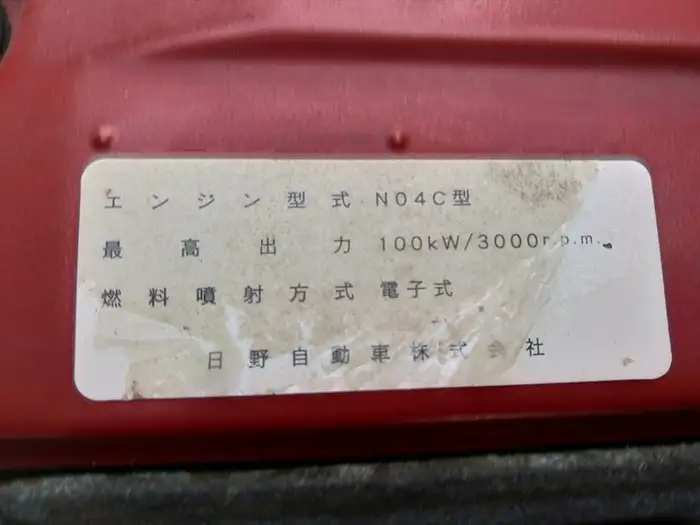 エンジン型式 N04C型
最高出力 100kW/3000r.p.m.
燃料噴射方式 電子式
日野自動車株式会社